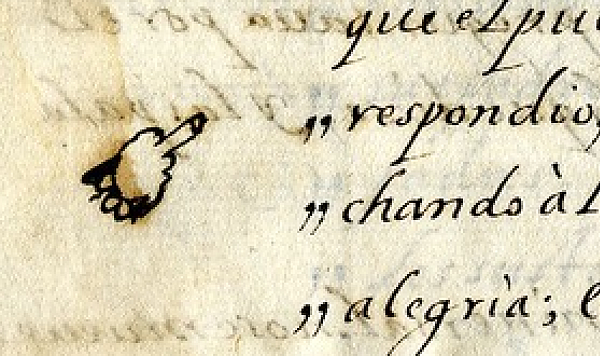 que el pu
„ respondio,
„ chando à l
„ alegrìa; l